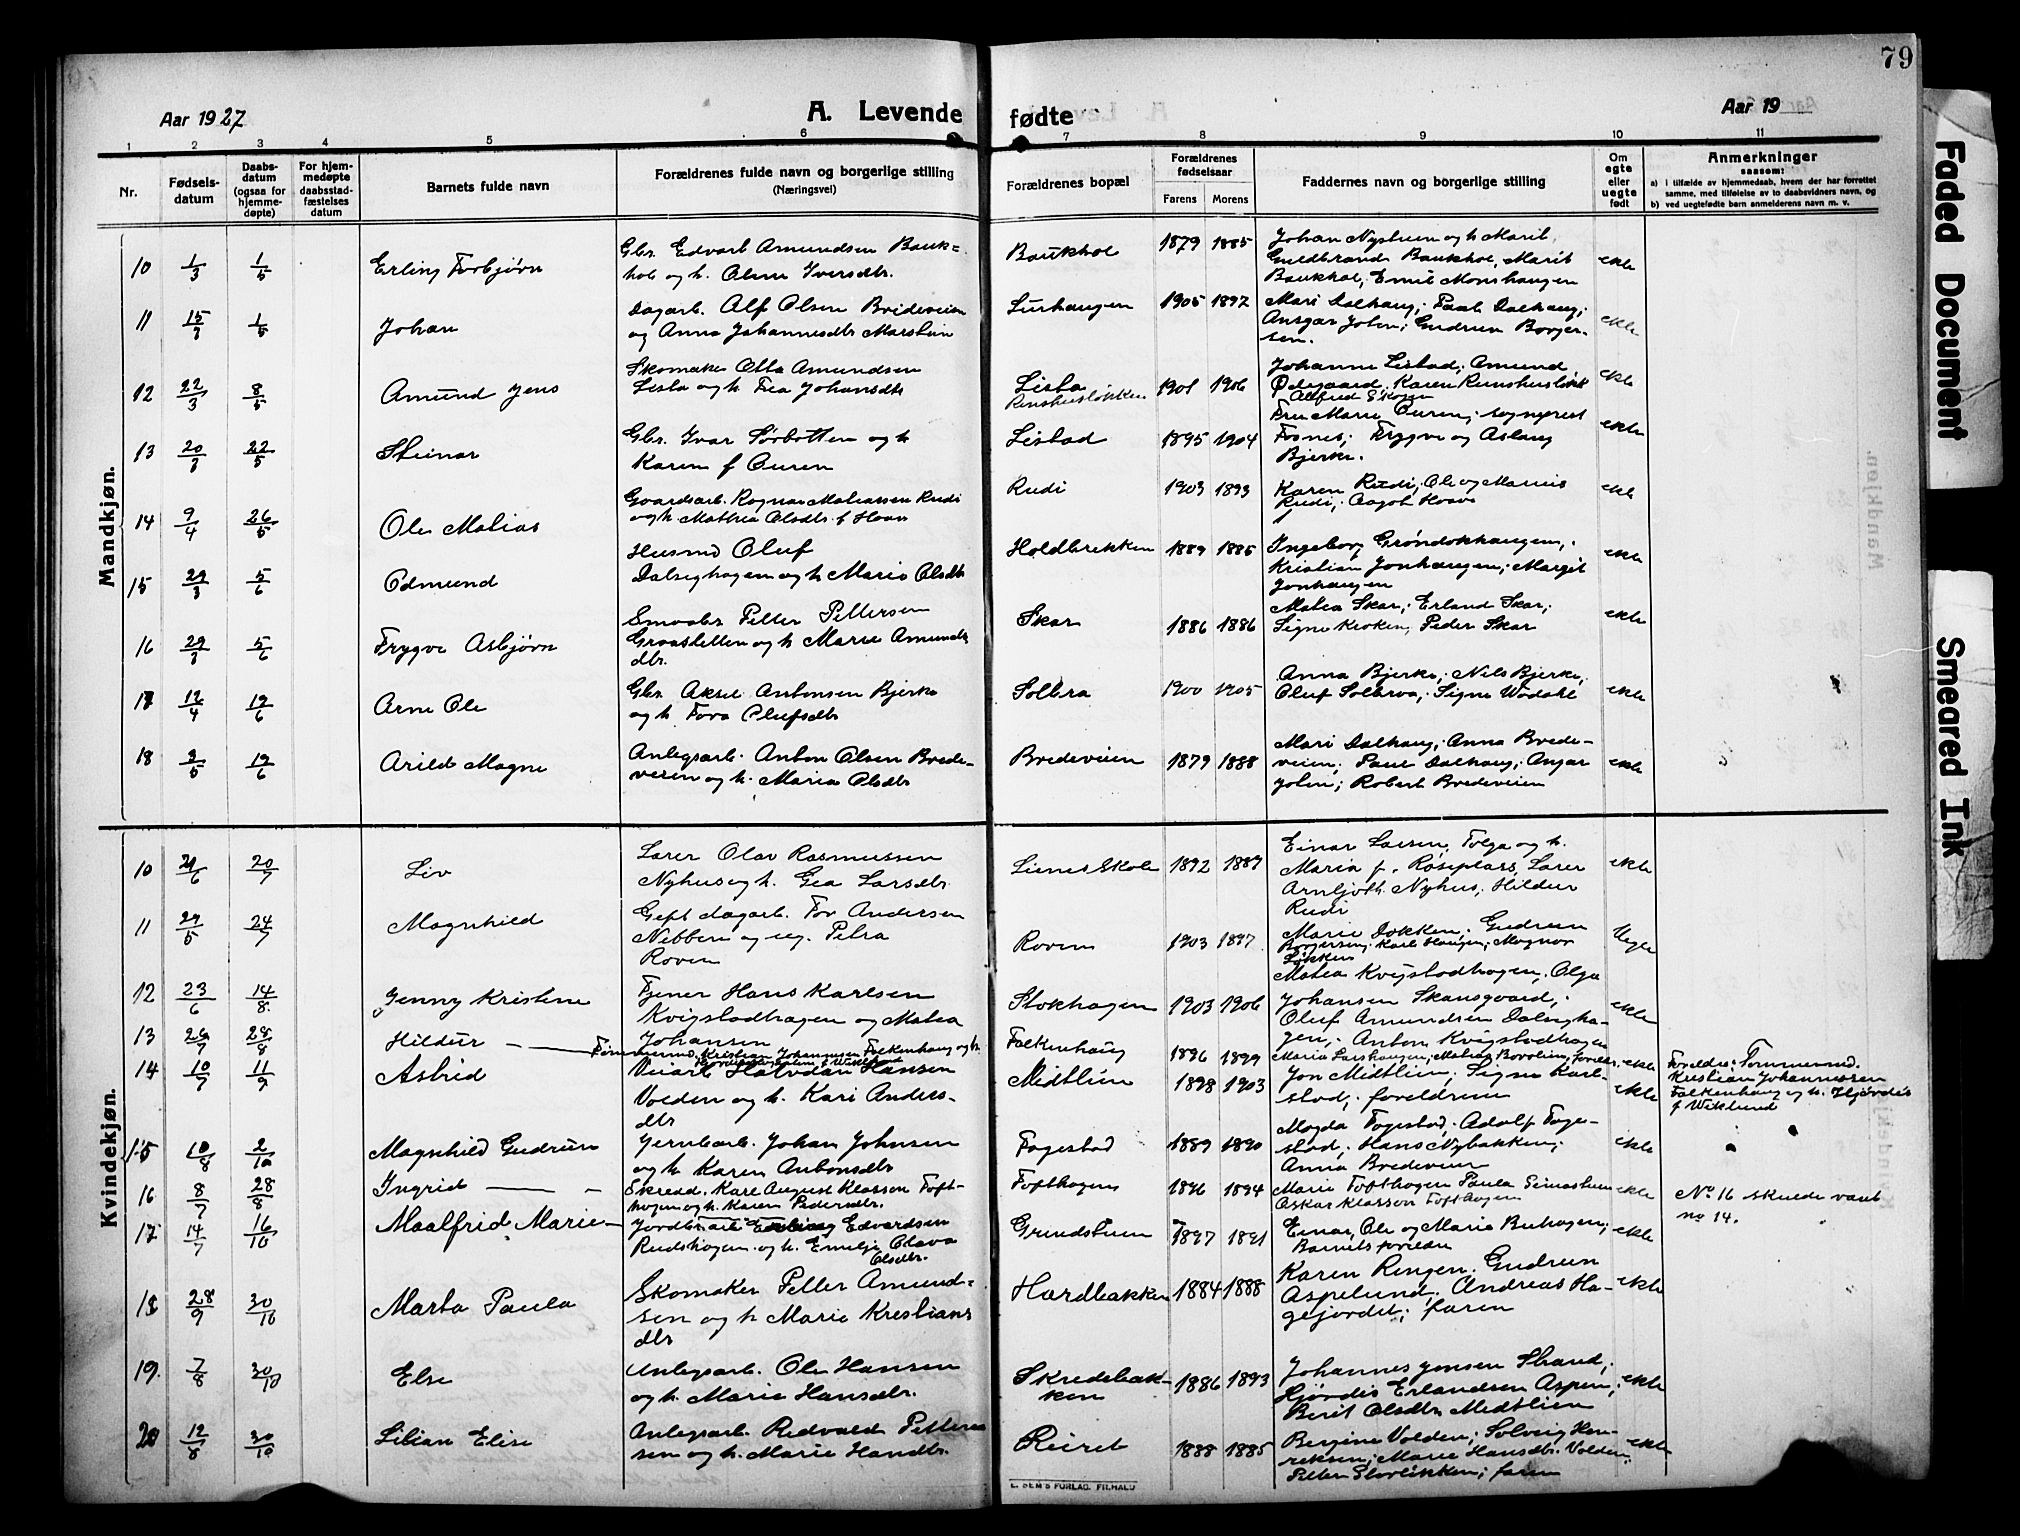 79
Aar 1927
A. Levende fødte
Aar 19
1 2 3 4 5 6 7 8 9 10 11
Nr.
Fødsels-
datum
Daabs-
datum
(ogsaa for
hjemme-
døpte)
For hjem-
medøpte
daabsstad-
fæstelses
datum
Barnets fulde navn
Forældrenes fulde navn og borgerlige stilling
(Næringsvei)
Forældrenes bopæl
Forældrenes
fødselsaar
Farens Morens
Faddernes navn og borgerlige stilling
Om
egte
eller
uegte
født
Anmerkninger
saasom:
a) i tilfælde av hjemmedaab, hvem der har forrettet
samme, med tilføielse av to daabsvidners navn, og
b) ved uegtefødte barn anmelderens navn m. v.
Mandkjøn.
10 1/3 1/5 Erling Torbjørn
Gbr. Edvart Amundsen Bauk-
hol og h. Oline Iversdtr.
Baukhol 1879 1885
Johan Nystuen og h. Marit,
Guldbrand Baukhol, Marit
Baukhol, Emil Monshaugen
ekte
11 15/3 1/5 Johan
Dagarb. Alf Olsen Brideveien
og Anna Johannesdtr Marstein
Lurhaugen 1905 1897
Mari Dalhaug; Paul Dalhaug;
Ansgar Jolin; Gudrun Borger-
sen.
ekte
12 22/3 8/5 Amund Jens
Skomaker Otto Amundsen
Lista og h. Tea Johansdtr
Lista
1901 1906
Johanne Listad; Amund
Ødegaard; Karen
Alfred Skogen
ekte
13 20/3 22/5 Steinar
Gbr. Ivar Sørbotten og h
Karen f Ouren
Listad 1895 1904
Fru Marie Ouren; sogneprest
Fosnes; Trygve og Aslaug
Bjerke.
ekte
14 9/4 26/5 Ole Matias
Gaardsarb. Ragnar Matiassen Rudi
og h. Mathea Olsdtr. f Haave
Rudi 1903 1893
Karen Rudi; Ole og Marius
Rudi; Aagot Haave
ekte
15 29/3 5/6 Edmund
Husmd Oluf
Dalseghagen og h Marie Olsdtr
Holdbrekken 1889 1885
Ingeborg Grøndokhaugen;
Kristian Jonhaugen; Margit
Jonhaugen
ekte
16 29/3 5/6 Trygve Asbjørn
Smaabr. Petter Pettersen
Graasletten og h Marie Amunds
dtr.
Skar 1886 1886
Matea Skar; Erland Skar;
Signe Kroken, Peder Skar
ekte
17 12/4 19/6 Arne Ole
Gbr. Aksel Antonsen Bjerke
og h. Tora Olufsdtr
Solbraa 1900 1905
Anna Bjerke; Nils Bjerke,
Oluf Solbraa; Signe Wodahl
ekte
18 2/5 19/6 Arild Magne
Anlegsarb. Anton Olsen Brede-
veien og h. Maria Olsdtr
Bredeveien 1879 1888
Mari Dalhaug; Anna Brede-
veien; Paul Dalhaug; Ansgar
Jolin; Robert Bredeveien
ekte
Kvindekjøn.
10 20/7 Liv
Lærer Olav Rasmussen
Nyhus og h. Gea Larsdtr.
Lienes Skole 1892 1887
Einar Larsen, Tolga og h.
Maria f. Røseplass, Lærer
Arnljoth Nyhus, Hildur
Rudi
ekte
11 29/5 24/7 Magnhild
Gift dagarb. Tor Andersen
Nebben og ug. Petra
Roven
Roven 1903 1897
Marie Dokken; Gudrun
Borgersen; Karl Haugen; Magnar
Løkken
Uegte
12 23/6 14/8 Jenny Kristine
Tjener Hans Karlsen
Kvigstadhagen og Matea
Johansen
Stokhagen 1903 1906
Matea Kvigstadhagen; Olga
Johansen Skansgaard;
Oluf Amundsen Dalsegha-
gen; Anton Kvigstadhagen
ekte
13 26/7 28/8 Hildur
Tømmermd. Kristian Johannesen Falkenhaug og h.
Falkenhaug 1896 1899
Maria Larshaugen; Matias
ekte
14 10/7 11/9 Astrid
Veiarb. Halvdan Hansen
Volden og h. Kari Anders-
dtr
Midtlien 1898 1903
Jon Midtlien; Signe Karl-
stad; foreldrene
ekte
Foreldre: Tømmermd.
Kristian Johannessen
Falkenhaug og h. Hjørdis
f Wiklund
15 10/8 2/10 Magnhild Gudrun
Jernbarb. Johan Johnsen
og h Karen Antonsdtr
Fagestad 1889 1890
Magda Fagestad; Adolf Fage-
stad; Hans Nybakken;
Anna Bredeveien
ekte
16 8/7 28/8 Ingrid
Skredd. Karl August Klasson Toft-
hagen og h. Karen Pedersdtr.
Tofthagen 1896 1894
Marie Tofthagen Paula
Oskar Klasson Tofthagen
ekte
No 16 skulde vært
no 14.
17 14/7 16/10 Maalfrid Marie
Jordbr.arb. Edvardsen
Rudshagen og h. Emelje Olava
Olsdtr.
Grundstuen 1897 1891
Einar, Ole og Maria Buhagen;
Barnets foreldre
ekte
18 28/9 30/10 Marta Paula
Skomaker Petter Amund-
sen og h Marie Kristians
dtr
Hardbakken 1884 1888
Karen Ringen. Gudrun
Aspelund; Andreas Ha-
gejordet; faren
ekte
19 7/8 30/10 Else
Anlegsarb. Ole Hansen
og h. Marie Hansdtr.
Skredebak-
ken 1886 1893
Johannes Jensen Strand;
Hjørdis Erlandsen Aspen;
Berit Olsdtr. Midtlien
ekte
20 12/8 30/10 Lilian Elise
Anlegsarb. Redvald Petter
sen og h. Marie Hansdtr.
Reiret 1888 1885
Bergine Volden; Solveig Hen-
riksen; Marie Hansdtr. Volden;
Petter Slovlikken; faren
ekte
E. SEM'S FORLAG. FR.HALD
Faded Document
Smeared Ink